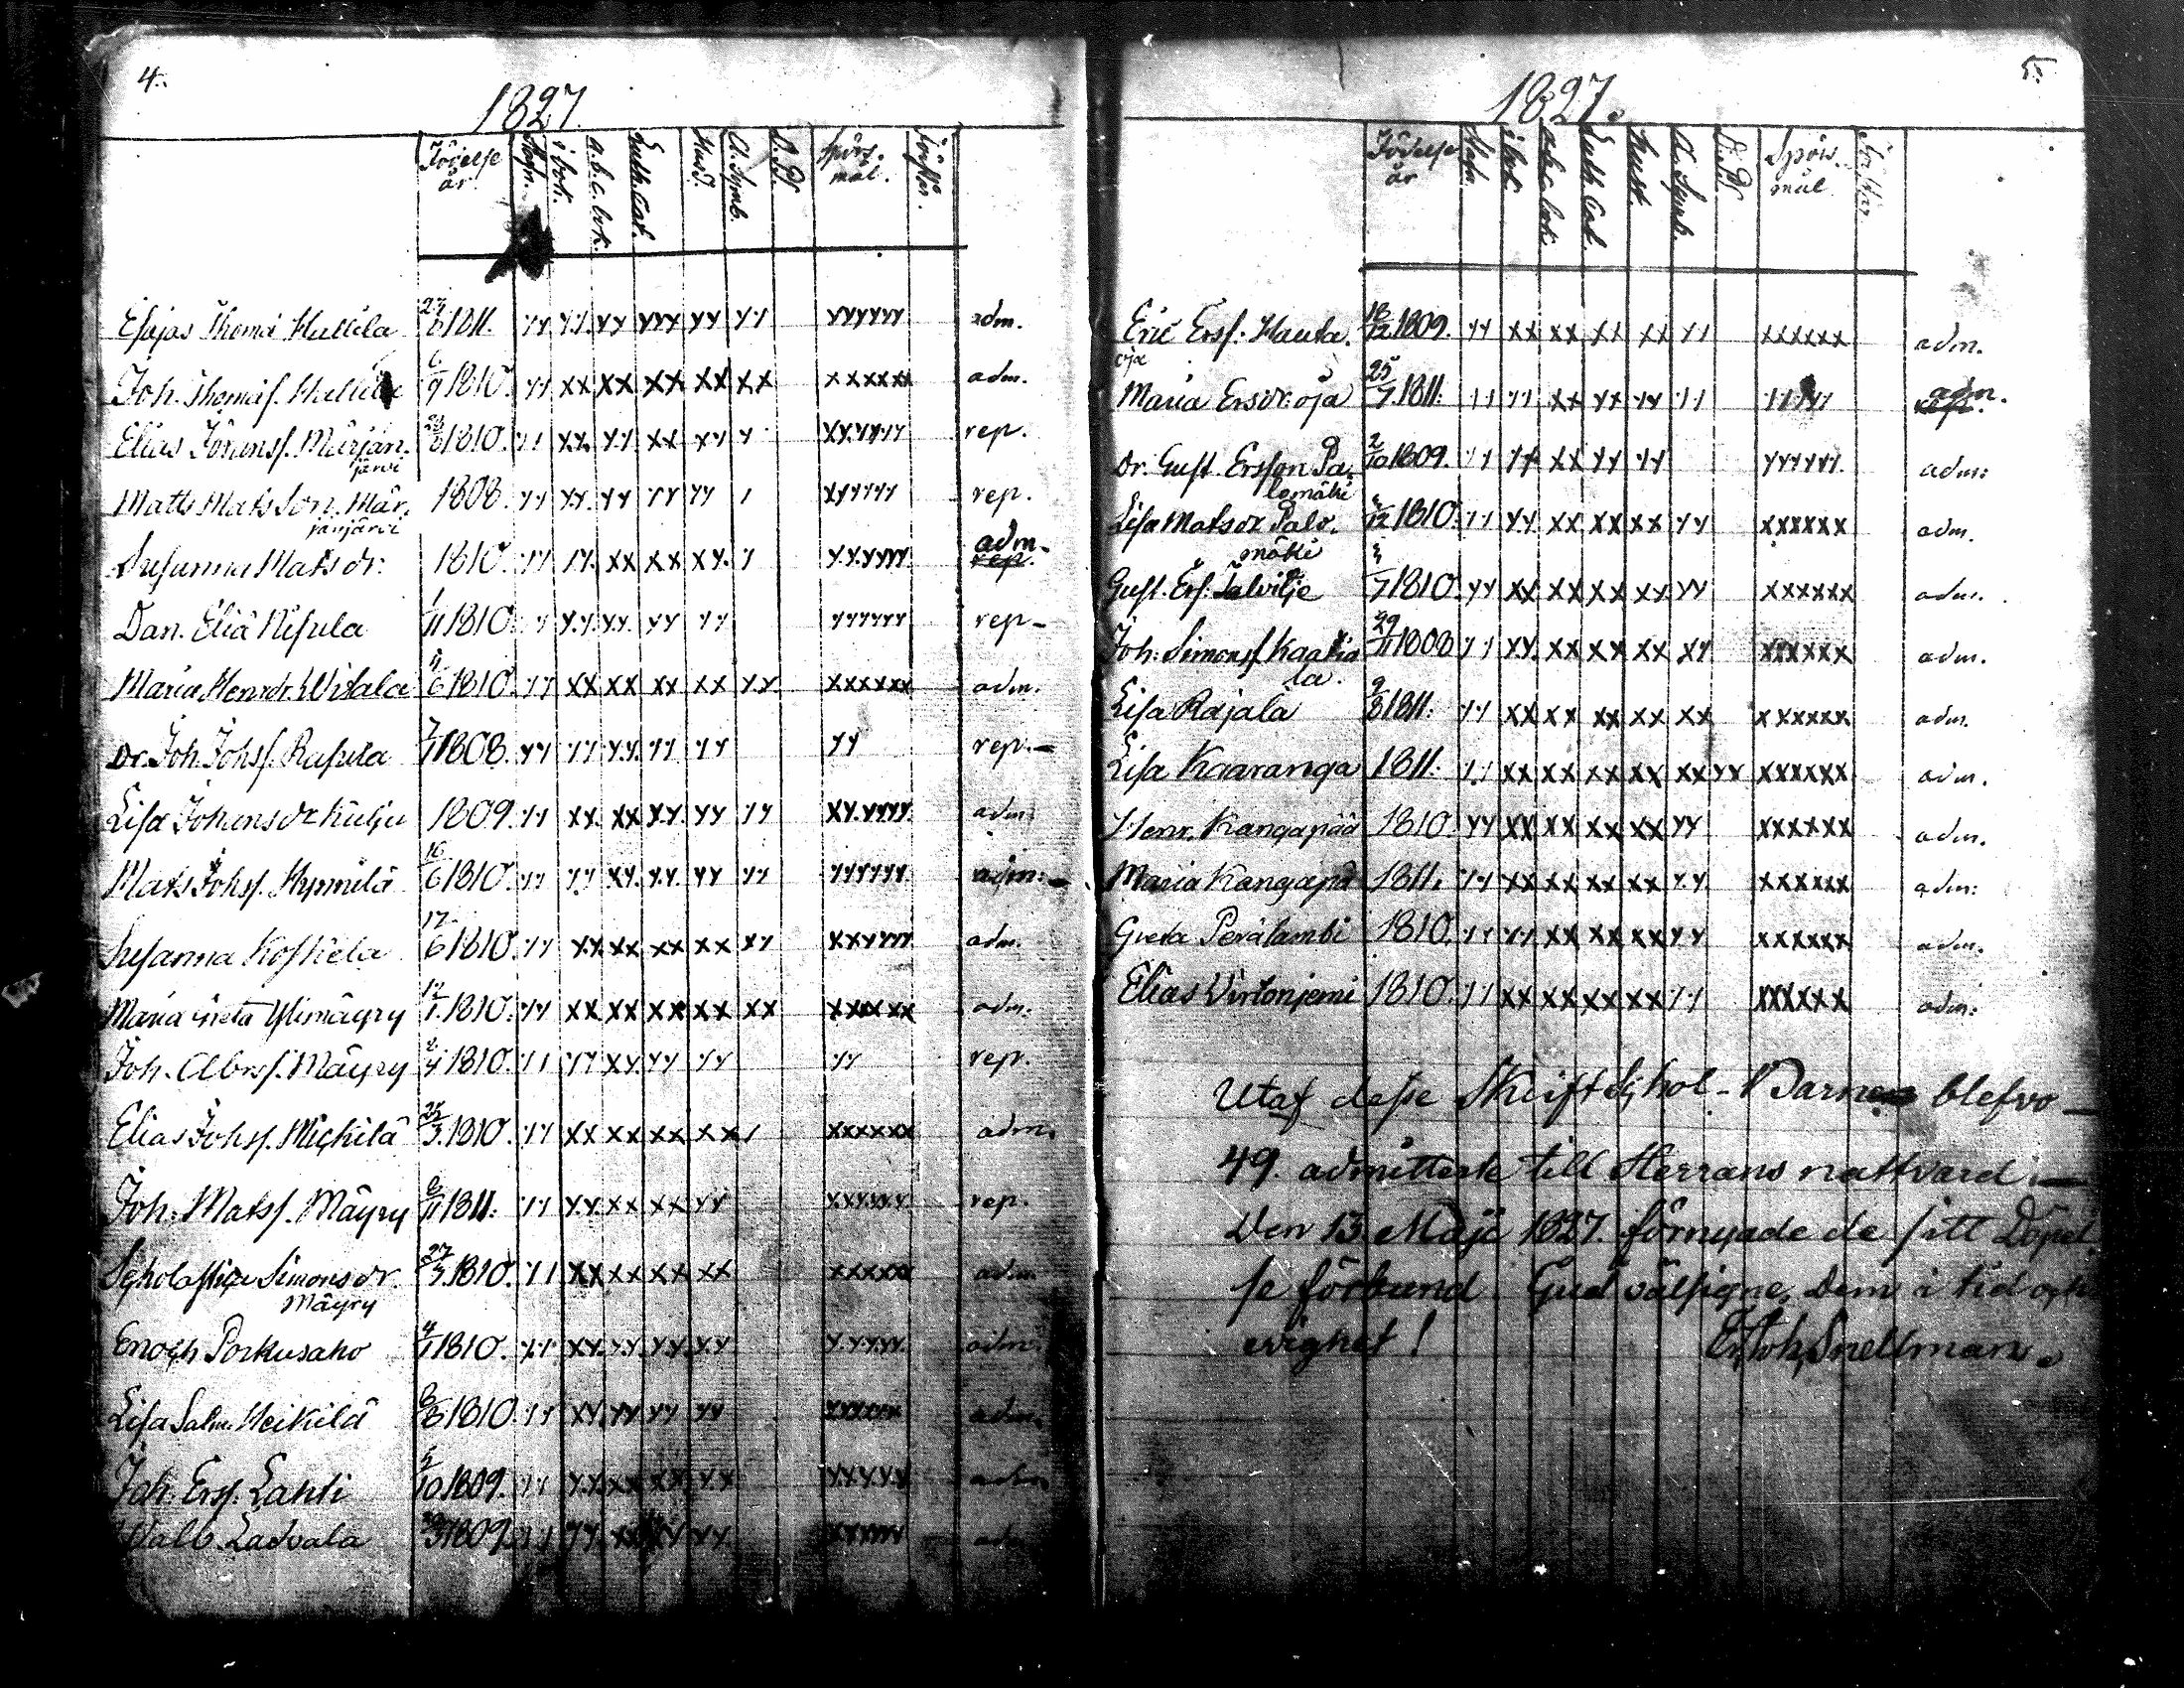 4.
1827.
Födelse år. i bok. a.b.c. bok. Luth. Cat. Hust. A. Symb. D. Ps. Spörsmål.
Esajas Thomä Hallila 8 1811. yy yy yy yyy yy yy yyyyyy adm.
Joh. Thomæs. 6/9 1810. yy xx xx xx xx xx xxxxxx adm.
Elias Johanss. Märjänjärvi 1810. yy xx yy xx xy y xxyyyy rep.
Matts Matsson Märjänjärvi 1808. yy yy yy yy yy 1 xyyyyy rep.
Susanna Matsdr. 1810. yy yy xx xx xx 1 yyyyyy adm. rep.
Dan. Eliä Nisula 1/11 1810. y yy yy yy yy yyyyyy rep
Maria Henrdr. Witala 6 1810. yy xx xx xx xx yy xxxxxx adm.
Dr. Joh. Johss. Rasula 1808. yy yy yy yy yy yy rep.
Lisa Johansdr Kulju 1809. yy xx xx xy yy yy xxyyyy adm.
Mats Johss. 16/6 1810. yy yy xy yy yy yy yyyyyy adm.
Susanna Koskela 17/6 1810. yy xx xx xx xx xy xxyyyy adm.
Maria Greta Ylimäyry 1810. yy xx xx xx xx xx xxxxxx adm.
Joh. Abrs. Mäyry 2/4 1810. yy yy xy yy yy yy rep.
Elias Johss. Mickilä 25/3 1810. yy xx xx xx xx 1 xxxxxx adm.
Joh. Matss. Mäyry 11 1811. yy yy xx xx yy xxyyxy rep.
Scholastica Simonsdr. Mäyry 27 1810. yy xx xx xx xx xxxxx adm.
Enoch Porkusaho 4 1810. yy xx yy yy yy yyyyy adm.
Lisa Salm. Heikilä 8/8 1810. yy xy yy yy yy xxxxx adm.
Joh. Erss. Lahti 5/10 1809. yy yy xx xx yx yyxyy adm
Walb. Latvala 1809. yy yy xx xy yy xxyyy ad
5.
1827.
Födelse år i bok. abc. bok. Luth. Cat. Hust. A. Symb. D. Ps. Spörsmål.
Eric Erss. Hautaoja 18/12 1809. yy xx xx xx xx yy xxxxxx adm.
Maria Ersdr. oja 25/7 1811. yy yy xx xx yy yy yyyy adm.
Dr. Gust. Ersson Palomäki 2/10 1809. yy yy xx yy yy yyyyyy adm:
Lisa Matsdr Palomäki /12 1810. yy yy xx xx xx yy xxxxxx adm.
Gust. Ers. Salvilje /7 1810. yy xx xx xx xx yy xxxxxx adm.
Joh. Simonss. Kaakiala. 29/11 1808 yy xx xx xx xx xy xxxxxx adm.
Lisa Rajala 9/8 1811. yy xx xx xx xx xx xxxxxx adm.
Lisa Kaaranga 1811. yy xx xx xx xx xx yy xxxxxx adm.
Henr. Kangapää 1810. yy xx xx xx xx yy xxxxxx adm.
Maria Kangapä 1811. yy xx xx xx xx yy xxxxxx adm:
Greta Perälambi 1810. yy yy xx xx xx yy xxxxxx adm.
Elias Wirtonjemi 1810. yy xx xx xx xx yy xxxxxx adm:
Utaf desse Skriftschol-Barnen blefvo
49. admitterte till Herrans nattvard.
Den 13 Maji 1827. förnyade de sitt Döpel
se förbund. Gud välsigne, Dem i tid och
evighet! Er. Joh. Snellman.